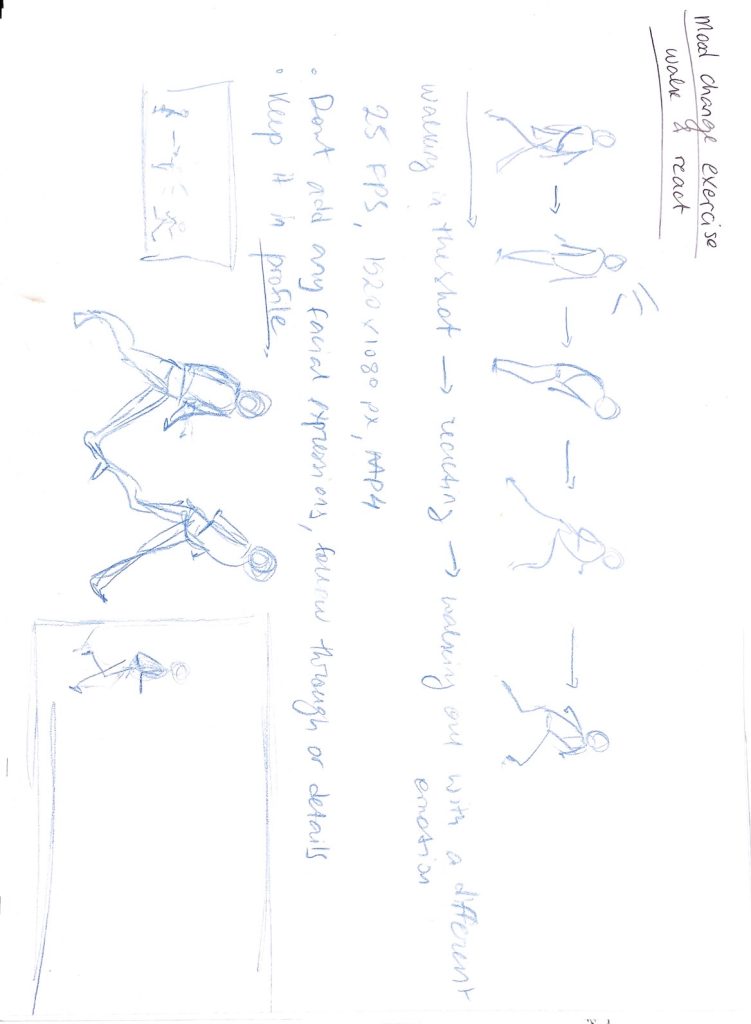 Mood change exercise
walk & react
walking in the shot → reacting → walking out with a different
emotion
25 FPS, 1920 x 1080 px, MP4
• Dont add any facial expressions, follow through or details
• Keep it in profile